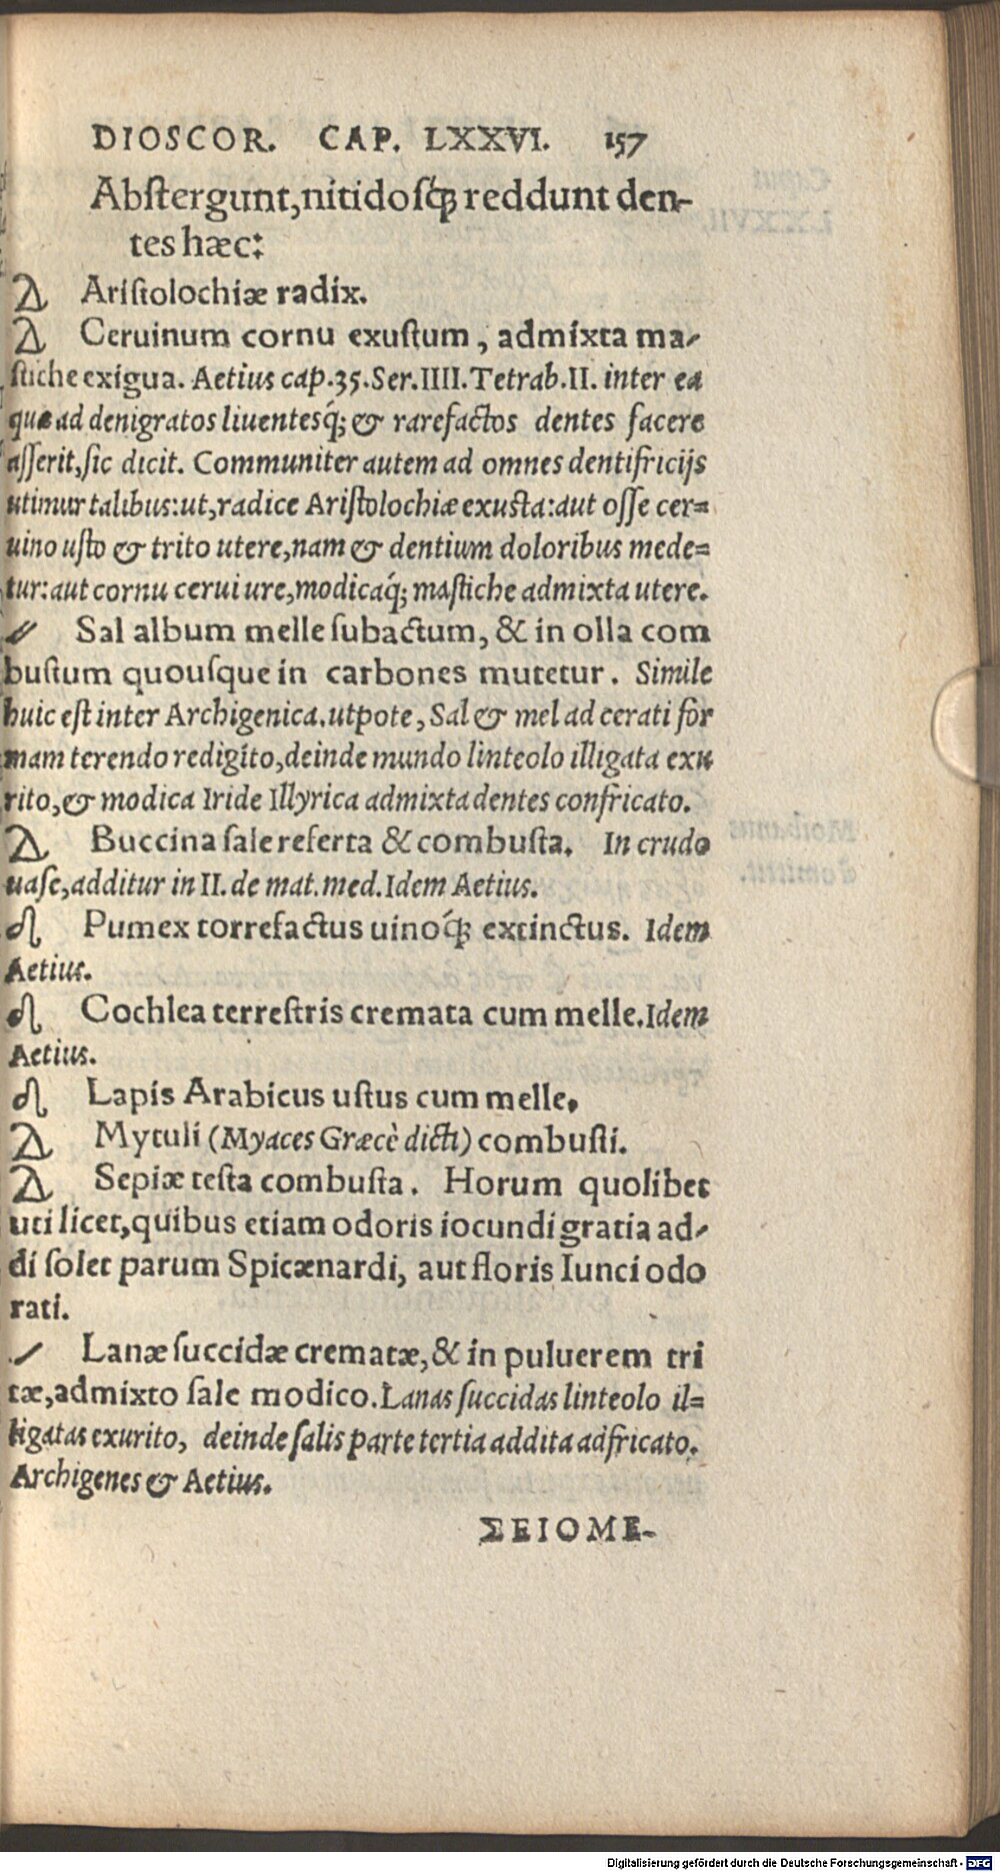 DIOSCOR. CAP. LXXVI. 157
Abſtergunt,nitidoſq́ꝫ reddunt den-
tes hæc:
Ariſtolochiæ radix.
Ceruinum cornu exuſtum, admixta ma-
ſtiche exigua. Aetius cap.35.Ser.IIII.Tetrab.II. inter ea
quæ ad denigratos liuentesq́; & rarefactos dentes facere
aſſerit,ſic dicit. Communiter autem ad omnes dentifricijs
utimur talibus:ut,radice Ariſtolochiæ exuſta:aut oſſe cer=
uino uſto & trito utere,nam & dentium doloribus mede=
tur:aut cornu cerui ure,modicaq́; maſtiche admixta utere.
Sal album melle ſubactum, & in olla com
buſtum quouſque in carbones mutetur. Simile
huic eſt inter Archigenica.utpote, Sal & mel ad cerati for
mam terendo redigito,deinde mundo linteolo illigata exu
rito,& modica Iride Illyrica admixta dentes confricato.
Buccina ſale referta & combuſta. In crudo
uaſe,additur in II. de mat.med.Idem Aetius.
Pumex torrefactus uinoq́ꝫ extinctus. Idem
Aetius.
Cochlea terreſtris cremata cum melle.Idem
Aetius.
Lapis Arabicus uſtus cum melle.
Mytuli (Myaces Græcè dicti) combuſti.
Sepiæ teſta combuſta. Horum quolibet
uti licet,quibus etiam odoris iocundi gratia ad-
di ſolet parum Spicænardi, aut floris Iunci odo
rati.
Lanæ ſuccidæ crematæ,& in puluerem tri
tæ,admixto ſale modico.Lanas ſuccidas linteolo il=
ligatas exurito, deinde ſalis parte tertia addita adfricato.
Archigenes & Aetius.
ΣΕΙΟΜΕ-
Digitalisierung gefördert durch die Deutsche Forschungsgemeinschaft - DFG